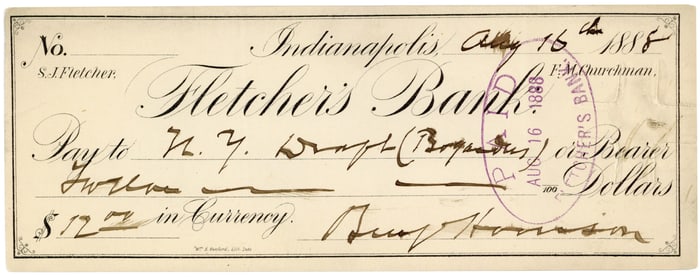 No. Indianapolis, Aug 16th 1888
S. J. Fletcher. F. M. Churchman.
Fletcher's Bank.
PAID AUG 16 1888 FLETCHER'S BANK.
Pay to N. Y. Draft (Bogardus) or Bearer
Twelve 100 Dollars
$ 12.00 in Currency. Benj Harrison